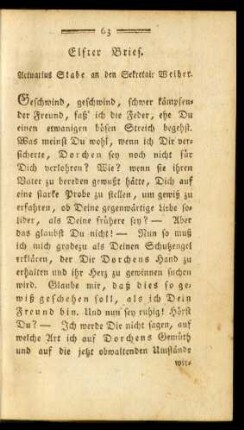 63
Elfter Brief.
Actuarius Stabe an den Sekretair Weiher.
Geschwind, geschwind, schwer kämpfen-
der Freund, faß' ich die Feder, ehe Du
einen etwanigen bösen Streich begehst.
Was meinst Du wohl, wenn ich Dir ver-
sicherte, Dorchen sey noch nicht für
Dich verlohren? Wie? wenn sie ihren
Vater zu bereden gewußt hätte, Dich auf
eine starke Probe zu stellen, um gewiß zu
erfahren, ob Deine gegenwärtige Liebe so-
lider, als Deine frühere sey? — Aber
das glaubst Du nicht! — Nun so muß
ich mich gradezu als Deinen Schutzengel
erklären, der Dir Dorchens Hand zu
erhalten und ihr Herz zu gewinnen suchen
wird. Glaube mir, daß dies so ge-
wiß geschehen soll, als ich Dein
Freund bin. Und nun sey ruhig! Hörst
Du? — Ich werde Dir nicht sagen, auf
welche Art ich auf Dorchens Gemüth
und auf die jetzt obwaltenden Umstände
wir-